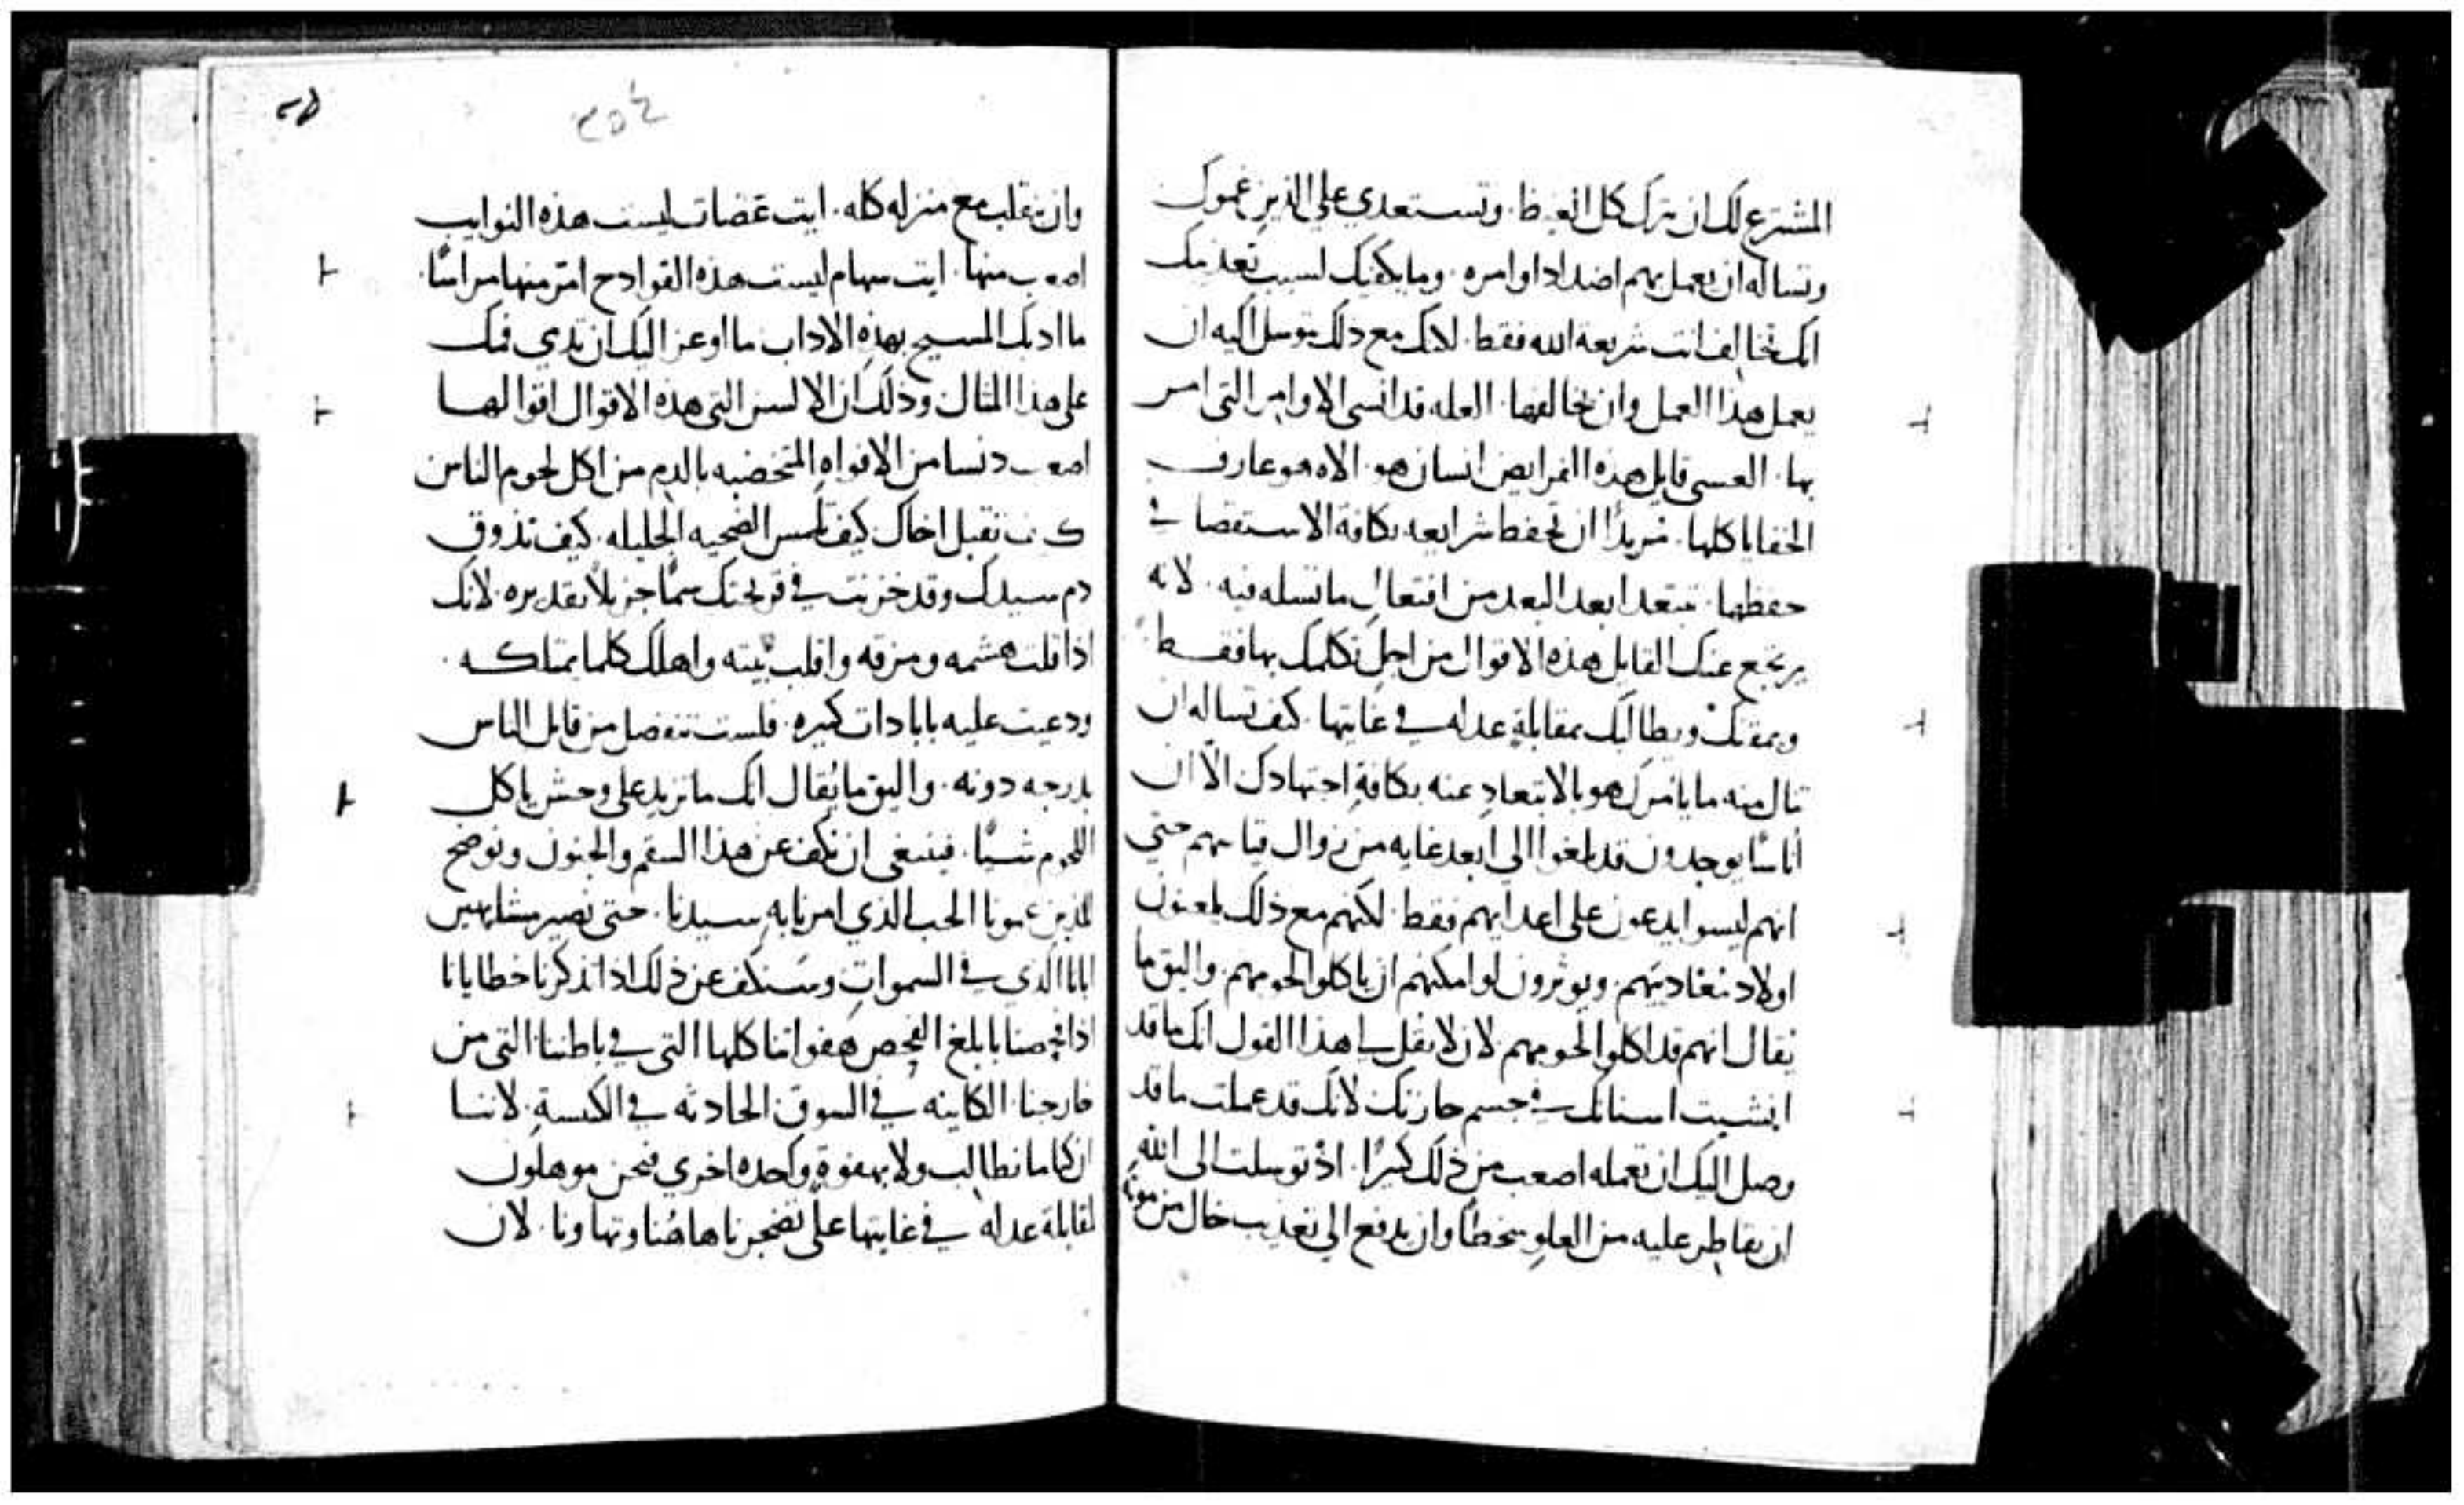 المشترع لك ان تترك كل الغيظ. وتستعدي على الذين غموك
وتساله ان يعمل بهم اضداد اوامره. وما يكفيك لسبب تعذيبك
انك تخالف انت شريعة الله فقط. لانك مع ذلك تتوسل اليه ان
يعمل هذا العمل وان يخالفها. العله قد انسى الاوامر التي امر
بها. العسى قايل هذه الفرايض انسان هو. الاه هو عارف
الخفايا كلها. مريدًا ان تحفظ شرايعه بكافة الاستقصا في
حفظها. يبتعد ابعد البعد من افتعال ما تسله فيه. لانه
يرتجع عنك القايل هذه الاقوال من اجل تكلمك بها فقط
ويمقتك ويطالبك بمقابلة عدله في غايتها. كيف تساله ان
تنال منه ما يامرك هو بالابتعاد عنه بكافة اجتهادك الّا ان
أناسًا يوجدون قد بلغوا الى ابعد غايه من زوال قياسهم حتي
انهم ليسوا يدعون على اعدايهم فقط. لكنهم مع ذلك يلعنون
اولاد معاديهم. ويوثرون لو امكنهم ان ياكلوا لحومهم. واليق ما
يقال انهم قد اكلوا لحومهم. لان لا تقل لي هذا القول انك ما قد
انشبت اسنانك في جسم حازنك لانك قد عملت ما قد
وصل اليك ان تعمله اصعب من ذلك كثيرًا. اذ توسلت الى الله
ان يقاطر عليه من العلو سخطًا وان يدفع الى تعذيب خال من موت
٢٥٤
٢٥
وان ينقلب مع منزله كله. ايت عضات ليست هذه النوايب
اصعب منها. ايت سهام ليست هذه القوادح امرّ منها مراسًا.
ما ادبك المسيح بهذه الاداب ما اوعز اليك ان تدمي فمك
على هذا المثال وذلك ان الالسن التي هذه الاقوال اقوالها
اصعب دنسا من الافواه المتخضبه بالدم من اكل لحوم الناس
كيف تقبل اخاك كيف تلمس الضحيه الجليله. كيف تذوق
دم سيدك وقد خزنت في قريحتك سمًّا جزيلًا تقديره. لانك
اذا قلت هشمه ومزقه واقلب بيته واهلك كلما يمتلكه.
ودعيت عليه بابادات كثيره. فلست تنفصل من قاتل الناس
بدرجه دونه. واليق ما يُقال انك ما تزيد على وحش ياكل
اللحوم شيًا. فينبغي ان نكف عن هذا السقم والجنون ونوضح
للذين غمونا الحب الذي امرنا به سيدنا. حتى نصير مشابهين
ابانا الذي في السموات وسنكف عن ذلك اذا تذكرنا خطايانا
اذا فحصنا بابلغ الفحص هفواتنا كلها التي في باطننا التي من
خارجنا. الكاينه في السوق. الحادثه في الكنيسة. لاننا
ان كنا ما نطالب ولا بهفوة واحده اخري فنحن موهلون
لمقابلة عدله في غايتها على تضجرنا هاهُنا وتهاونا. لان